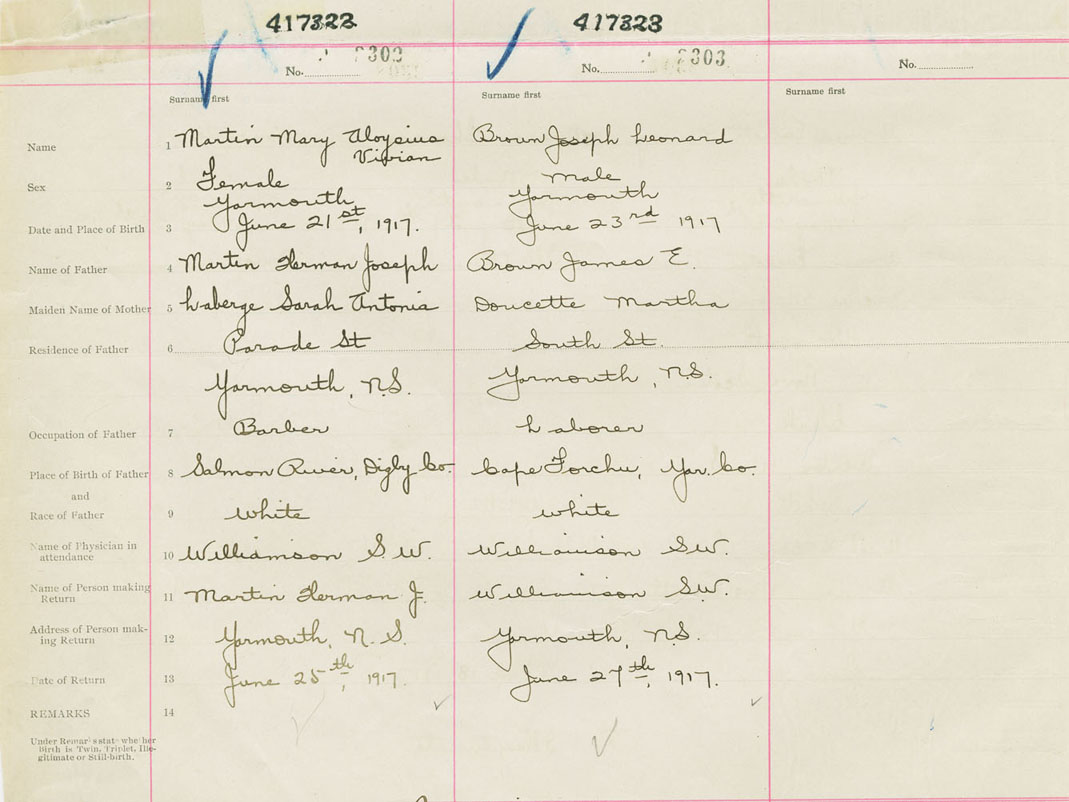 417323 417323
No. 303 No. 303 No.
Surname first Surname first Surname first
Name 1 Martin Mary Aloysius Brown Joseph Leonard
Vivian
Sex 2 Female male
Yarmouth Yarmouth
Date and Place of Birth 3 June 21st, 1917. June 23rd 1917
Name of Father 4 Martin Herman Joseph Brown James E.
Maiden Name of Mother 5 Laberge Sarah Antonia Doucette Martha
Residence of Father 6 Parade St South St.
Yarmouth, N.S. Yarmouth, N.S.
Occupation of Father 7 Barber Laborer
Place of Birth of Father 8 Salmon River, Digby Co. Cape Forchu, Yar. Co.
and
Race of Father 9 White White
Name of Physician in
attendance 10 Williamson S. W. Williamson S.W.
Name of Person making
Return 11 Martin Herman J. Williamson S.W.
Address of Person mak-
ing Return 12 Yarmouth, N. S. Yarmouth, N.S.
Date of Return 13 June 25th, 1917. June 27th, 1917.
REMARKS 14
Under Remarks state whether
Birth is Twin, Triplet, Ille-
gitimate or Still-birth.